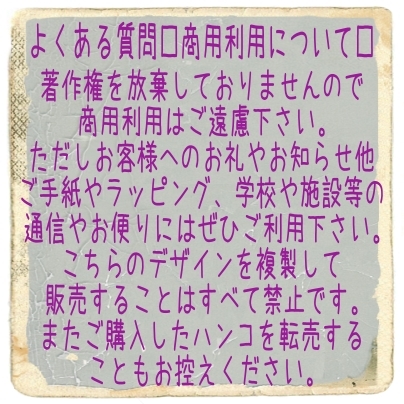 よくある質問□商用利用について□
著作権を放棄しておりませんので
商用利用はご遠慮下さい。
ただしお客様へのお礼やお知らせ他
ご手紙やラッピング、学校や施設等の
通信やお便りにはぜひご利用下さい。
こちらのデザインを複製して
販売することはすべて禁止です。
またご購入したハンコを転売する
こともお控えください。